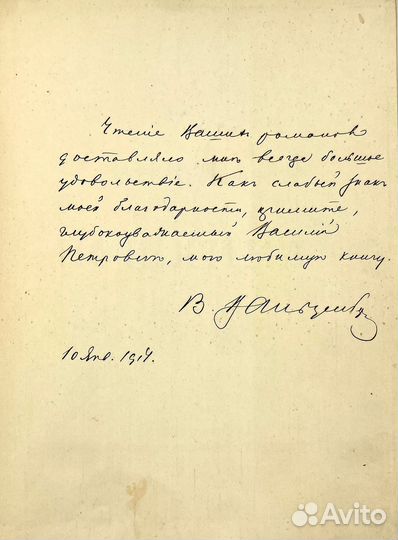 Чтеніе Вашихъ романовъ
доставляло мнѣ всегда большое
удовольствіе. Какъ слабый знакъ
моей благодарности, примите,
глубокоуважаемый Василій
Петровичъ, мою любимую книгу.
В.
10 Янв. 1914.
Avito